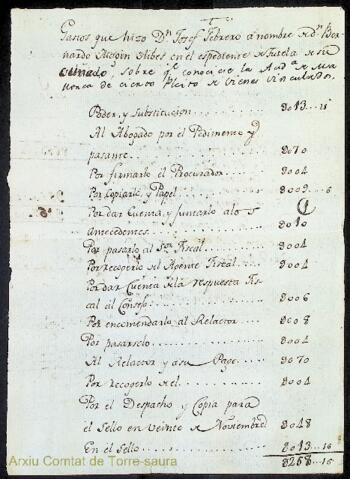 Gastos que hizo Dn. Josef Febrero á nombre de dn. Ber
nardo Olives en el espediente de Tutela de su
cuñado, sobre qe. conocio la Audª de Ma
llorca de cierto Pleito de vienes vinculados.
Poder, y Substitucion 2013 .. 11
Al Abogado por el Pedimento y
pasante 2070
Por firmarlo el Procurador 2004
Por Copiarlo, y Papel 2009 .. 6
Por dar Cuenta, y juntarlo a los
antecedentes 2010
Por pasarlo al Sor. Fiscal 2004
Por recogerlo del Agente Fiscal 2004
Por dar Cuenta de la respuesta Fis
cal al Consejo 2006
Por encomendarlo al Relator 2008
Por pasarselo 2004
Al Relator y a su Page 2070
Por recogerlo de el 2004
Por el Despacho y Copia para
el Sello en veinte de Noviembre 2048
En el Sello 2013 .. 16
2268 .. 15
Arxiu Comtat de Torre-saura